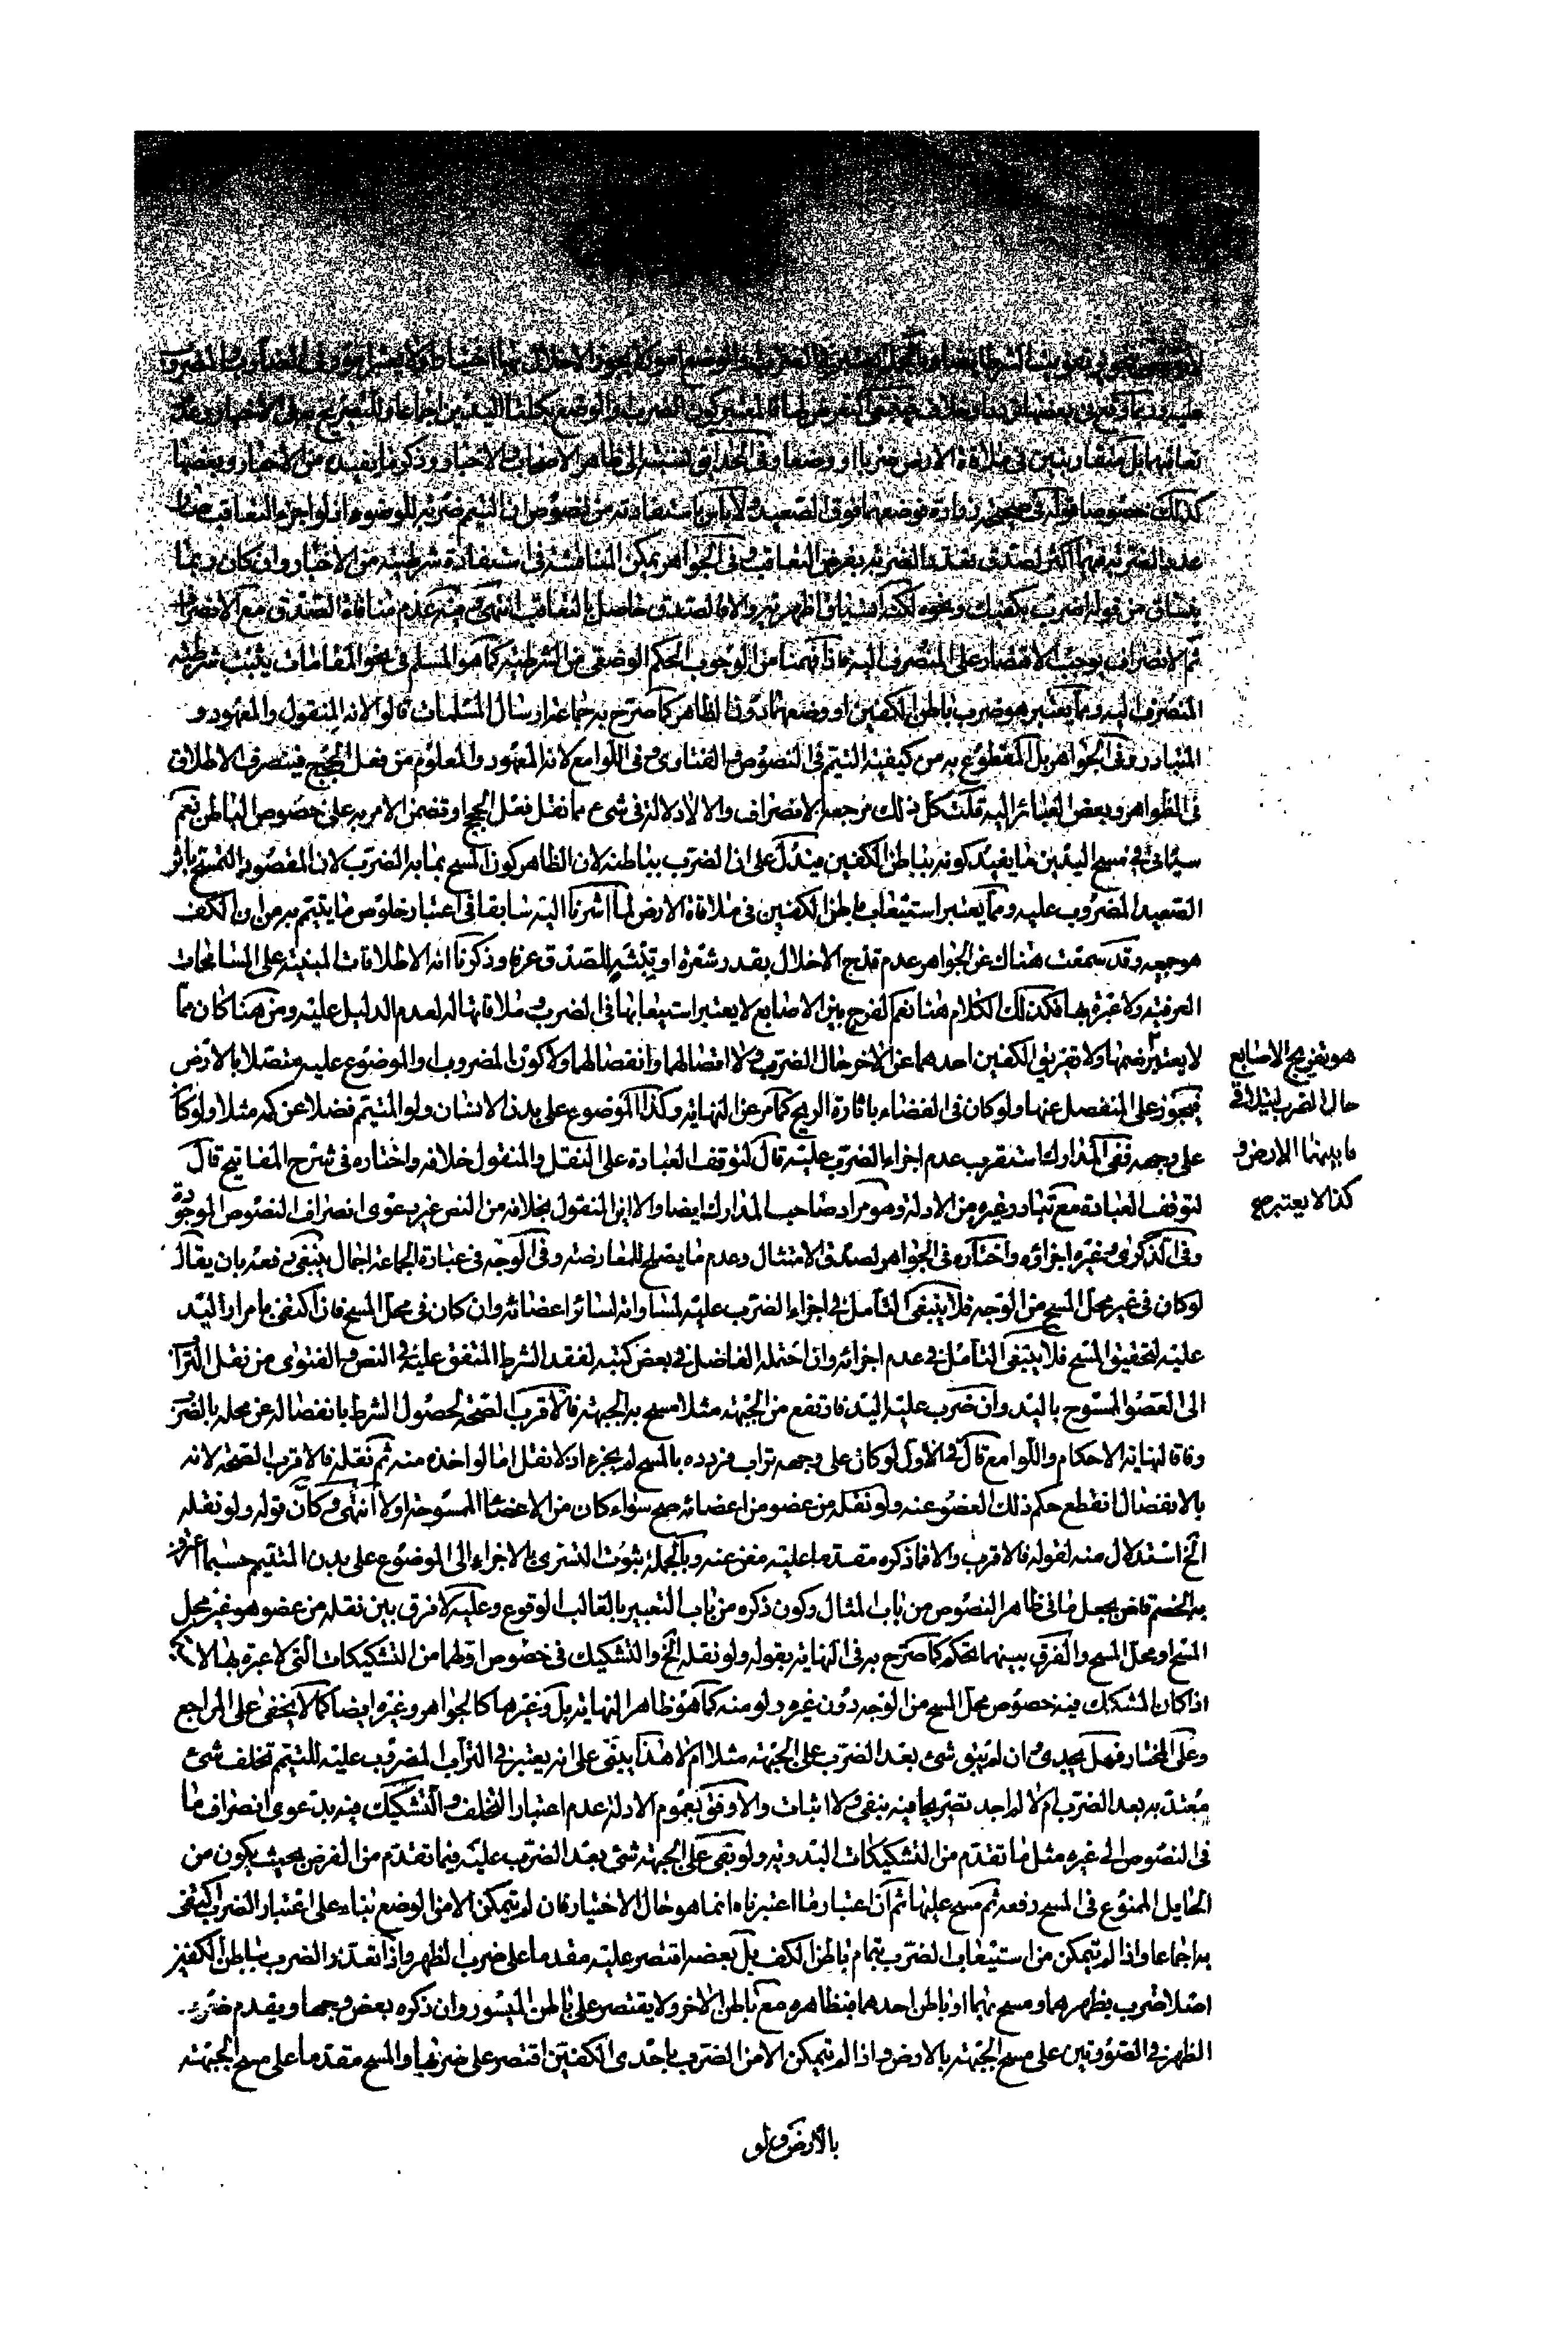 تعاقبهما بل متقاربتين في ملاقاة الارض ضربا او وضعا وفى الحدائق نسبته الى ظاهر الاصحاب والاخبار وذكر ما يفيده من الاخبار وبعضها
كذلك خصوصا قوله في صحيحة زرارة فوضعهما فوق الصعيد ولا باس باستفادته من نصوص ان التيمم ضربة للوضوء اذ لو اجزء التعاقب
تعدد الضربة بفرض التعاقب وفى الجواهر يمكن المناقشة في استفادة شرطيته من الاخبار وان كان ربما
ينساق من قوله اضرب بكفيك ونحوه لكنه انسياق اظهر به والا فالصدق حاصل بالتعاقب انتهى وفيه عدم منافاة الصدق مع الانصراف
ثم الانصراف يوجب الاقتصار على المنصرف اليه فاذا فهمنا من الوجوب الحكم الوضعى من الشرطية كما هو المسلم في نحو المقامات يثبت شرطية
المنصرف اليه ومما يعتبر هو ضرب باطن الكفين او وضعهما دون الظاهر كما صرح به جماعة ارسال المسلمات قالوا لانه المنقول والمعهود و
المتبادر وفى الجواهر بل المقطوع به من كيفية التيمم في النصوص والفتاوى وفى اللوامع لانه المعهود والمعلوم من فعل الحجج فينصرف الاطلاق
في الظواهر وبعض العبائر اليه قلت كل ذلك مرجعه الانصراف والا لا دلالة في شئ مما نقل فعل الحجج او تضمن الامر به على خصوص الباطن نعم
سيأتي في مسح اليدين ما يفيد كونه بباطن الكفين فيدل على ان الضرب بباطنه لان الظاهر كون المسح بما به الضرب لان المقصود التمسح باثر
الصعيد المضروب عليه ومما يعتبر استيعاب باطن الكفين في ملاقاة الارض لما اشرنا اليه سابقا في اعتبار خلوص ما يتيمم به من ان الكف
هو جميعه وقد سمعت هناك عن الجواهر عدم قدح الاخلال بقدر شعرة او تبنة للصدق عرفا وذكرنا انه الاطلاقات المبنية على المسامحات
العرفية ولا عبرة بها فكذلك الكلام هنا نعم الفرج بين الاصابع لا يعتبر استيعابها في الضرب وملاقاتها له لعدم الدليل عليه ومن هنا كان مما
لا يعتبر ضمها ولا تفريق الكفين احدهما عن الاخر حال الضرب ولا اتصالهما وانفصالهما ولا كون المضروب او الموضوع عليه متصلا بالارض
فيجوز على المنفصل عنها ولو كان في الفضاء باثارة الريح كما مر عن النهاية وكذا الموضوع على بدن الانسان ولو المتيمم فضلا عن كمه مثلا ولو كان
على وجهه ففى المدارك استقرب عدم اجزاء الضرب عليه قال لتوقف العبادة على النقل والمنقول خلافه واختاره في شرح المفاتيح قال
لتوقف العبادة مع تبادر غيره من الادلة وهو مراد صاحب المدارك ايضا والا اين المنقول بخلافه من النص غير دعوى انصراف النصوص الموجودة
وفى الذكرى وغيره اجزاؤه واختاره في الجواهر لصدق الامتثال وعدم ما يصلح للمعارضة وفى الوجه في عبارة الجماعة اجمال ينبغى رفعه بان يقال
لو كان في غير محل المسح من الوجه فلا ينبغى التأمل في اجزاء الضرب عليه لمساواته لسائر اعضائه وان كان في محل المسح فان اكتفى بامرار اليد
عليه لتحقيق المسح فلا ينبغى التأمل في عدم اجزائه وان احتمله الفاضل في بعض كتبه لفقد الشرط المتفق عليه في النص والفتوى من نقل التراب
الى العضو الممسوح باليد وان ضرب عليه اليد فارتفع من الجبهة مثلا ومسح به الجبهة فالاقرب الصحة لحصول الشرط بانفصاله عن محله بالضرب
وفاقا لنهاية الاحكام واللوامع قال في الاول لو كان على وجهه تراب فردده بالمسح لم يجزء اذ لا نقل اما لو اخذه منه ثم نقله فالاقرب الصحة لانه
بالانفصال انقطع حكم ذلك العضو عنه ولو نقله من عضو من اعضائه صح سواء كان من الاعضاء الممسوحة او لا انتهى وكان قوله ولو نقله
الخ استدلال منه لقوله فالاقرب والا فما ذكره مقدما عليه مغن عنه وبالجملة ثبوت التسرى بالاجزاء الى الموضوع على بدن المتيمم حسبما اعترف
به الخصم قاض بجعل ما في ظاهر النصوص من باب المثال وكون ذكره من باب التعبير بالغالب الوقوع وعليه لا فرق بين نقله من عضو هو غير محل
المسح او محل المسح والفرق بينهما تحكم كما صرح به في النهاية بقوله ولو نقله الخ والتشكيك في خصوص اولهما من التشكيكات التي لا عبرة بها لا
اذا كان المشكك فيه خصوص محل المسح من الوجه دون غيره ولو منه كما هو ظاهر النهاية بل وغيرها كالجواهر وغيره ايضا كما لا يخفى على المراجع
وعلى المختار فهل يجدى ان لم يبق شئ بعد الضرب على الجبهة مثلا ام لا هذا يبتنى على انه يعتبر في التراب المضروب عليه للتيمم تخلف شئ
معتد به بعد الضرب ام لا لم اجد تصريحا فيه بنفى ولا اثبات والاوفق بعموم الادلة عدم اعتبار التخلف والتشكيك فيه بدعوى انصراف ما
في النصوص الى غيره مثل ما تقدم من التشكيكات البدوية ولو بقى على الجبهة شئ بعد الضرب عليه فيما تقدم من الفرض بحيث يكون من
الحايل الممنوع في المسح رفعه ثم مسح عليها ثم ان اعتبار ما اعتبرناه انما هو حال الاختيار فان لم يتمكن الا من الوضع بناء على اعتبار الضرب اكتفى
به اجماعا واذا لم يتمكن من استيعاب الضرب بتمام باطن الكف بل بعضه اقتصر عليه مقدما على ضرب الظهر واذا تعذر الضرب بباطن الكفين
اصلا ضرب بظهرهما ومسح بهما او باطن احدهما فبظاهره مع باطن الاخر ولا يقتصر على باطن الميسور وان ذكره بعض وجها ويقدم ضرب
الظهر في الصورتين على مسح الجبهة بالارض واذا لم يتمكن الا من الضرب باحدى الكفين اقتصر على ضربها والمسح مقدما على مسح الجبهة
بالارض ولو
هو تفريج الاصابع
حال الضرب ليتلاقى
ما بينهما الارض و
كذا لا يعتبر صح